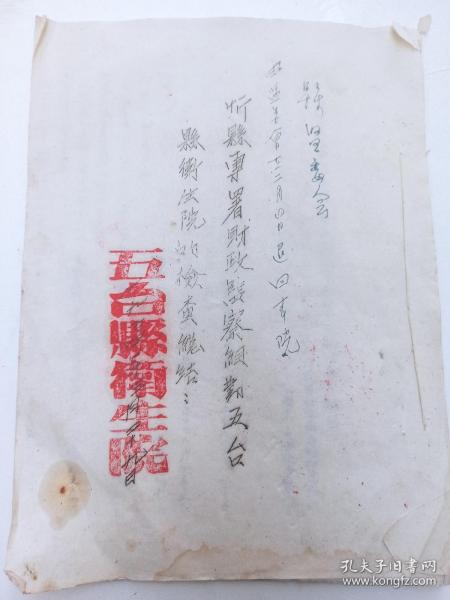 縣堅委会
十二月四日退回本院
忻縣專署財政監察組對五台
縣衛生院的檢查總結：
五台縣衛生院
孔夫子旧书网
www.kongfz.com